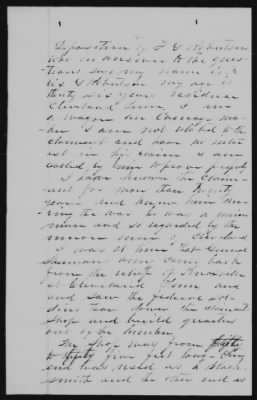 Deposition of F G Robertson
who in answer to the ques-
tions says my name is
G Robertson my age is
thirty six years residence
Cleveland Tenn, I am
a wagon and Carriage ma-
ker I am not related to the
claimant and have no inter
est in his claim I am
called by him to prove property
I have known the claim-
ant for more than twenty
years and knew him du-
ring the war he was a union
man and so regarded by the
union men of Cleveland
I was at home when General
Sherman army came back
from the relief of Knoxville
at Cleveland Tenn and
and saw the federal sol-
diers tear down the claimants
Shop and build quarters
out of the lumber
The Shop was from fifty
to fifty five feet long
and was used as a black
smith and the other end as